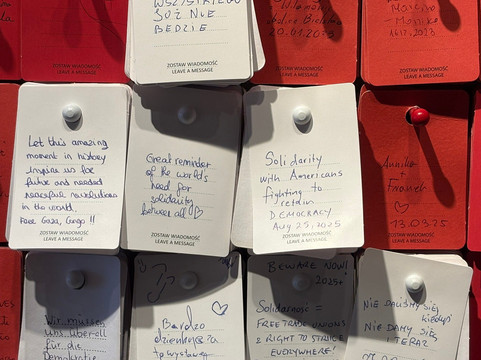 WSZYSTKIEGO
JUŻ NIE
BĘDZIE
ZOSTAW WIADOMOŚĆ
LEAVE A MESSAGE
20.01.2025
ZOSTAW WIADOMOŚĆ
LEAVE A MESSAGE
ZOSTAW WIADOMOŚĆ
LEAVE A MESSAGE
ZOSTAW WIADOMOŚĆ
LEAVE A MESSAGE
Let this amazing
moment in history
inspire us for
future and needed
peaceful revolutions
in the world.
Free Gaza, Congo !!
ZOSTAW WIADOMOŚĆ
LEAVE A MESSAGE
Great reminder
of the world's
need for
solidarity
between all ♡
ZOSTAW WIADOMOŚĆ
LEAVE A MESSAGE
Solidarity
with Americans
fighting to
retain
DEMOCRACY
Aug 25, 2025
ZOSTAW WIADOMOŚĆ
LEAVE A MESSAGE
Annika
+
♡
13.03.25
ZOSTAW WIADOMOŚĆ
LEAVE A MESSAGE
Wir müssen
uns überall
für die
Demokratie
♡
Bardzo
BEWARE NOW!
2025
Solidarność =
FREE TRADE UNIONS
& RIGHT TO STRIKE
EVERYWHERE!
NIE DALIŚMY SIĘ
KIEDYŚ
NIE DAMY SIĘ
TERAZ